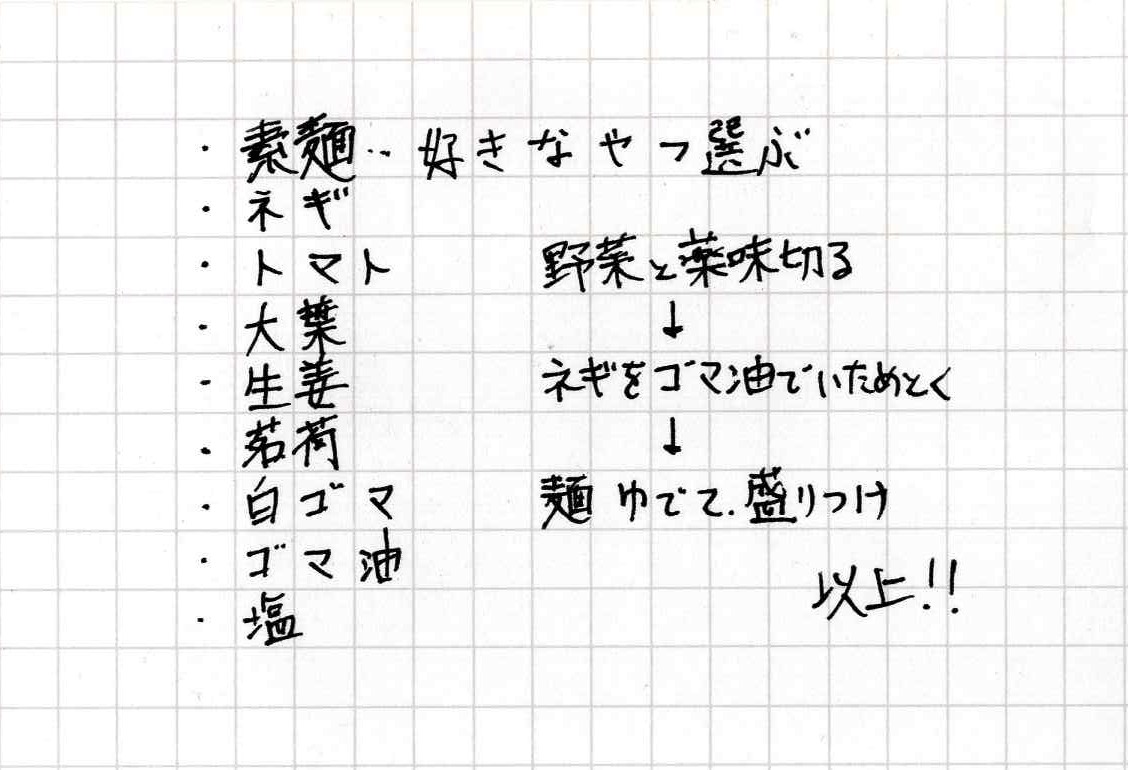 ・素麺‥好きなやつ選ぶ
・ネギ
・トマト
・大葉
・生姜
・茗荷
・白ゴマ
・ゴマ油
・塩
野菜と薬味切る
↓
ネギをゴマ油でいためとく
↓
麺ゆでて、盛りつけ
以上!!